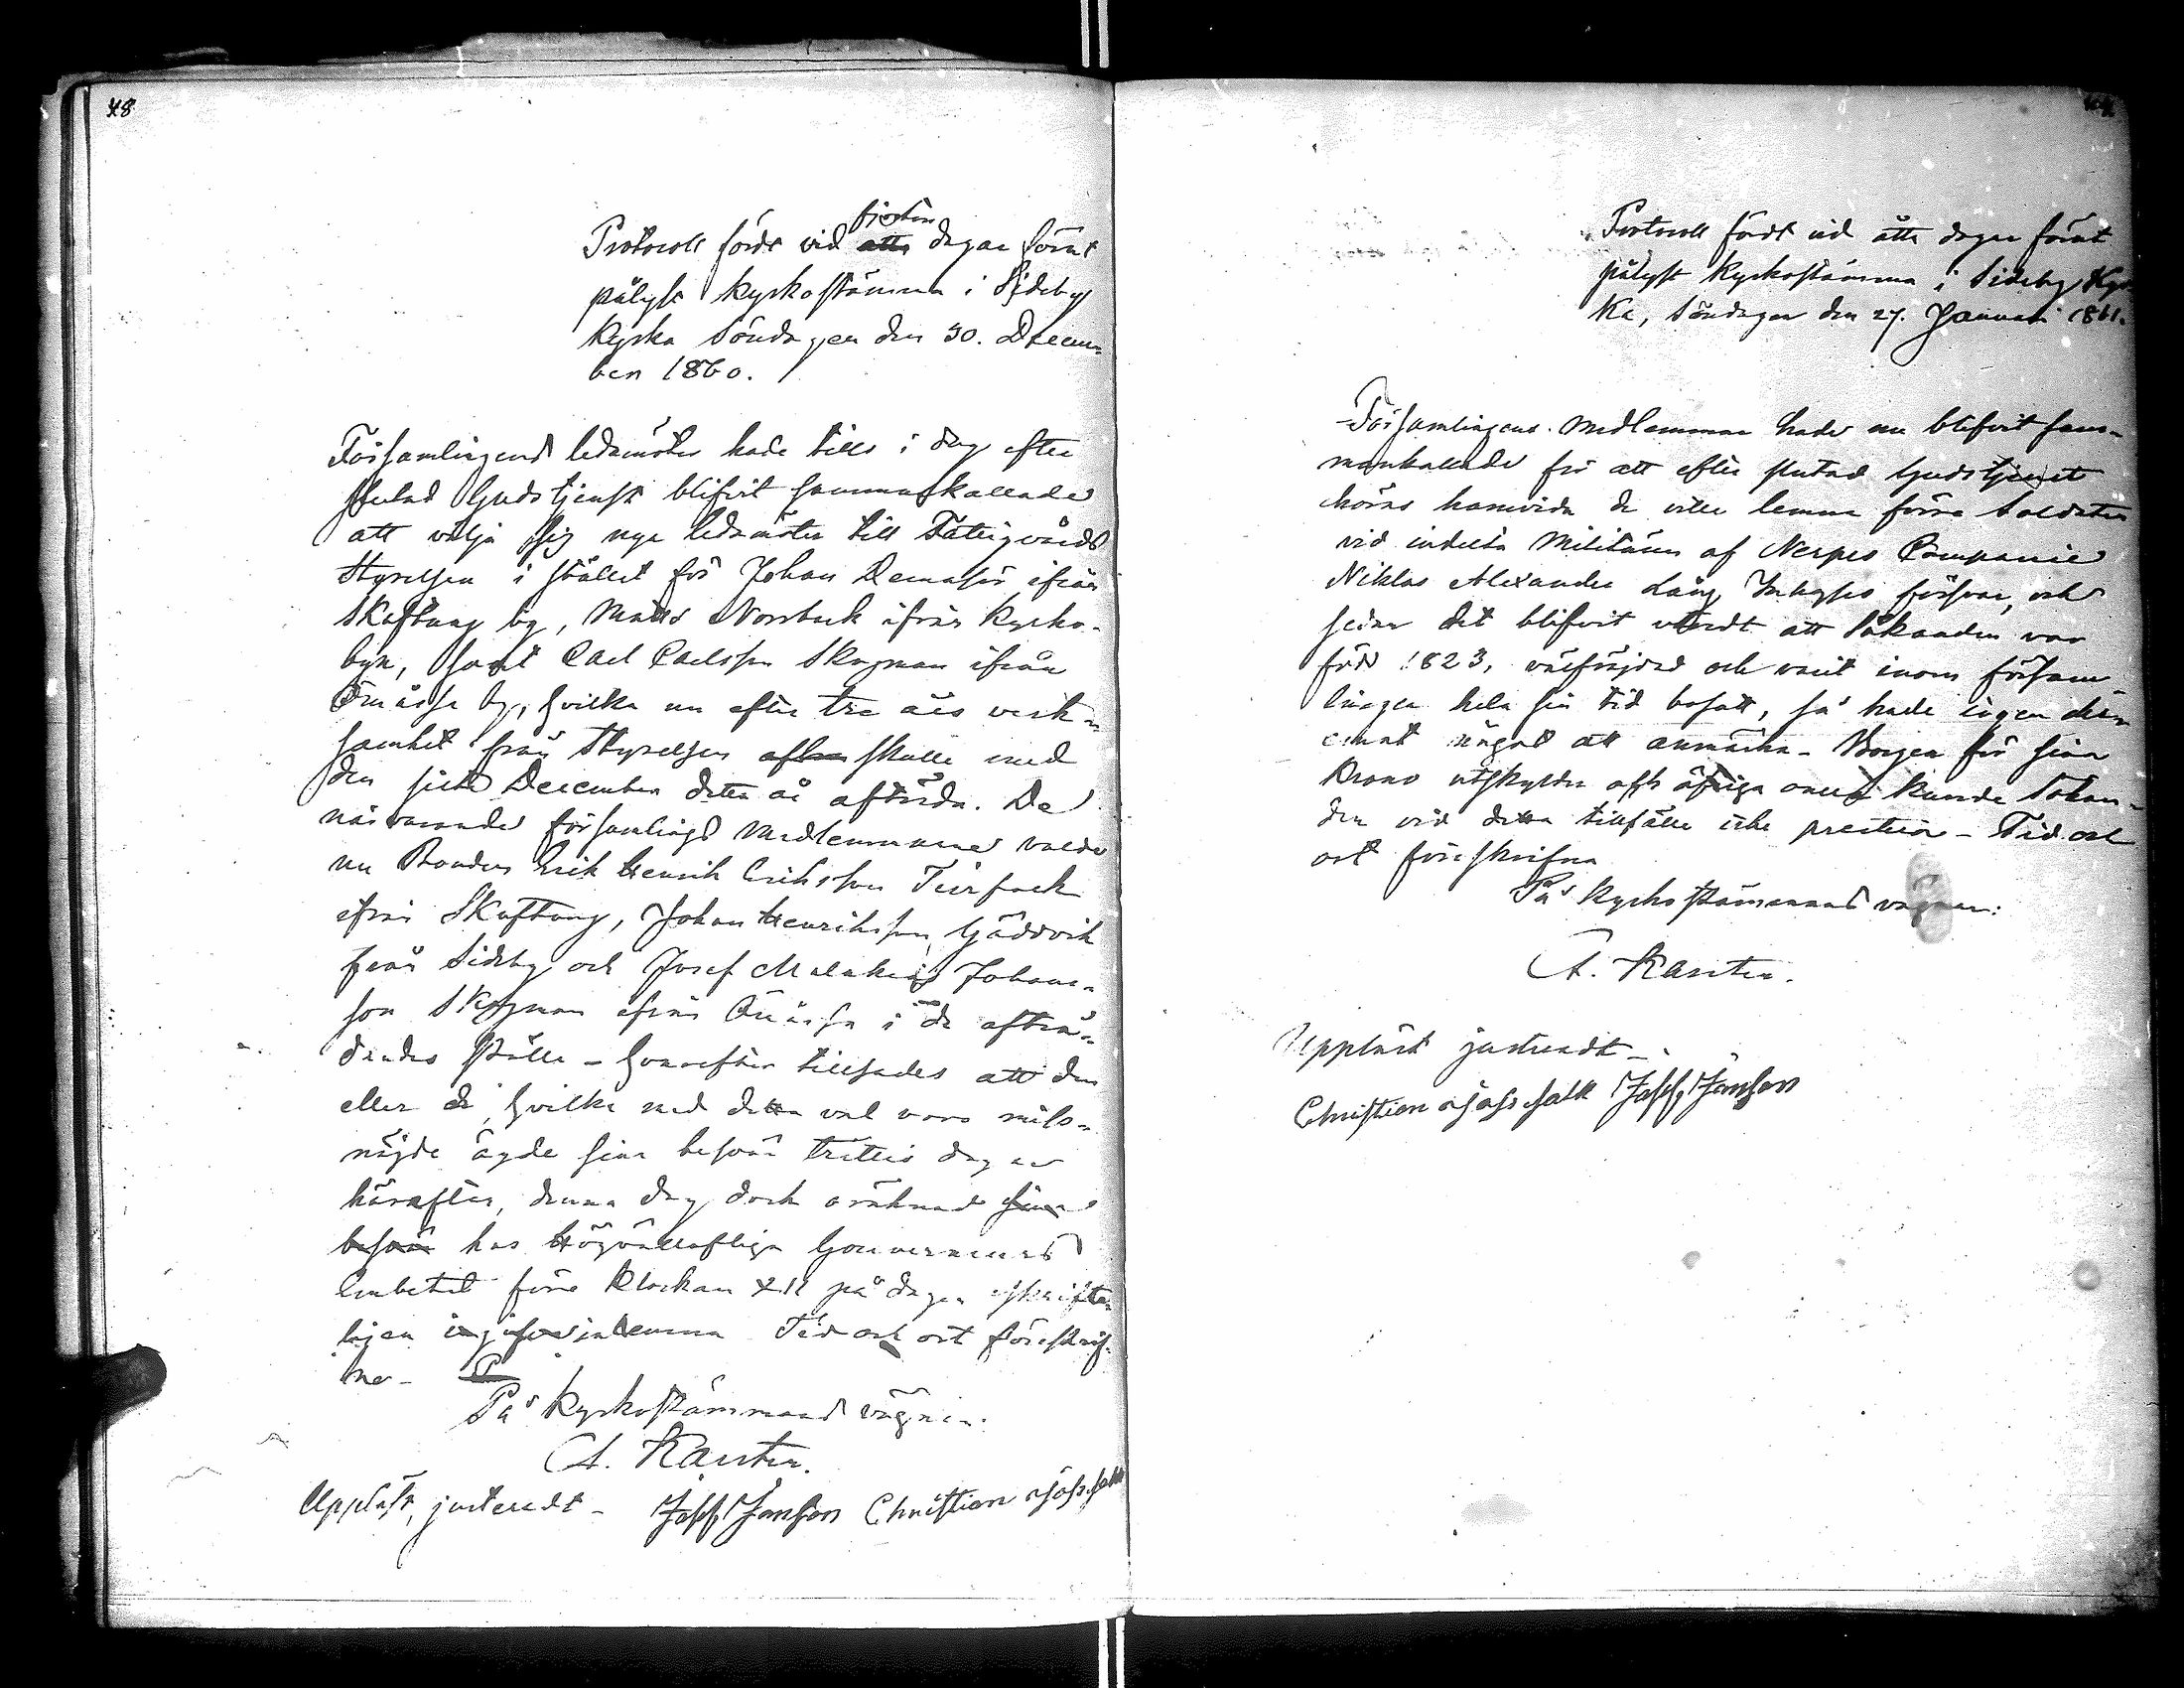 48
Protocoll fördt vid åtta fjorton dagar förut
pålyst kyrkostämma i Sideby
kyrka Söndagen den 30. Decem-
ber 1860.
Församlingens ledamöter hade tills i dag efter
slutad Gudstjenst blifvit sammankallade
att välja sig nye ledamöter till Fattigvårds
Styrelsen i stället för Johan ifrån
Skaftung by, Matts Norrback ifrån Kyrko-
byn, samt Carl Carlsson Skogman ifrån
Ömossa by, hvilka nu efter tre års verk-
samhet från Styrelsen skulle med
den siste December detta år afträda. De
närvarande församlings medlemmarne valde
nu Bonden Erik Henrik Eriksson Teirfolk
ifrån Skaftung, Johan Henriksson Gäddvik
från Sideby och Josef Malakias Johans-
son Skogman ifrån Ömossa i de afträ-
dandes ställe - hvarefter tillsades att den
eller de, hvilka med detta val voro miss-
nöjde ägde sina besvär trettio dagar
härefter, denna dag dock oräknad sina
besvär hos Högvällofliga Gouvernements
Embetet före klockan XII på dagen skrifte-
ligen ingifva inlemna Tid och ort föreskrif-
ne -
På Kyrkostämmans vägnar:
A. Karsten.
Uppläst, justeradt - Josef Janson Christian
Protocoll fördt vid åtta dagar förut
pålyst kyrkostämma i Sideby Kyr-
ka, Söndagen den 27. Januari 1861.
Församlingens medlemmar hade nu blifvit sam-
mankallade för att efter slutad Gudstjenst
höras huruvida de ville lemna förre Soldaten
vid indelta Militären af Nerpes Compagnie
Niklas Alexander Lång Inhyses försvar, och
sedan det blifvit utredt att Sökanden var
född 1823, välfrejdad och varit inom försam-
lingen hela sin tid bosatt, så hade ingen der-
emot något att anmärka - Borgen för sina
Krono utskylder och öfriga onera kunde Sökan-
den vid detta tillfälle icke prestera - Tid och
ort föreskrifna
På Kyrkostämmans vägnar:
A. Karsten.
Uppläst justeradt -
Christian Josef Janson